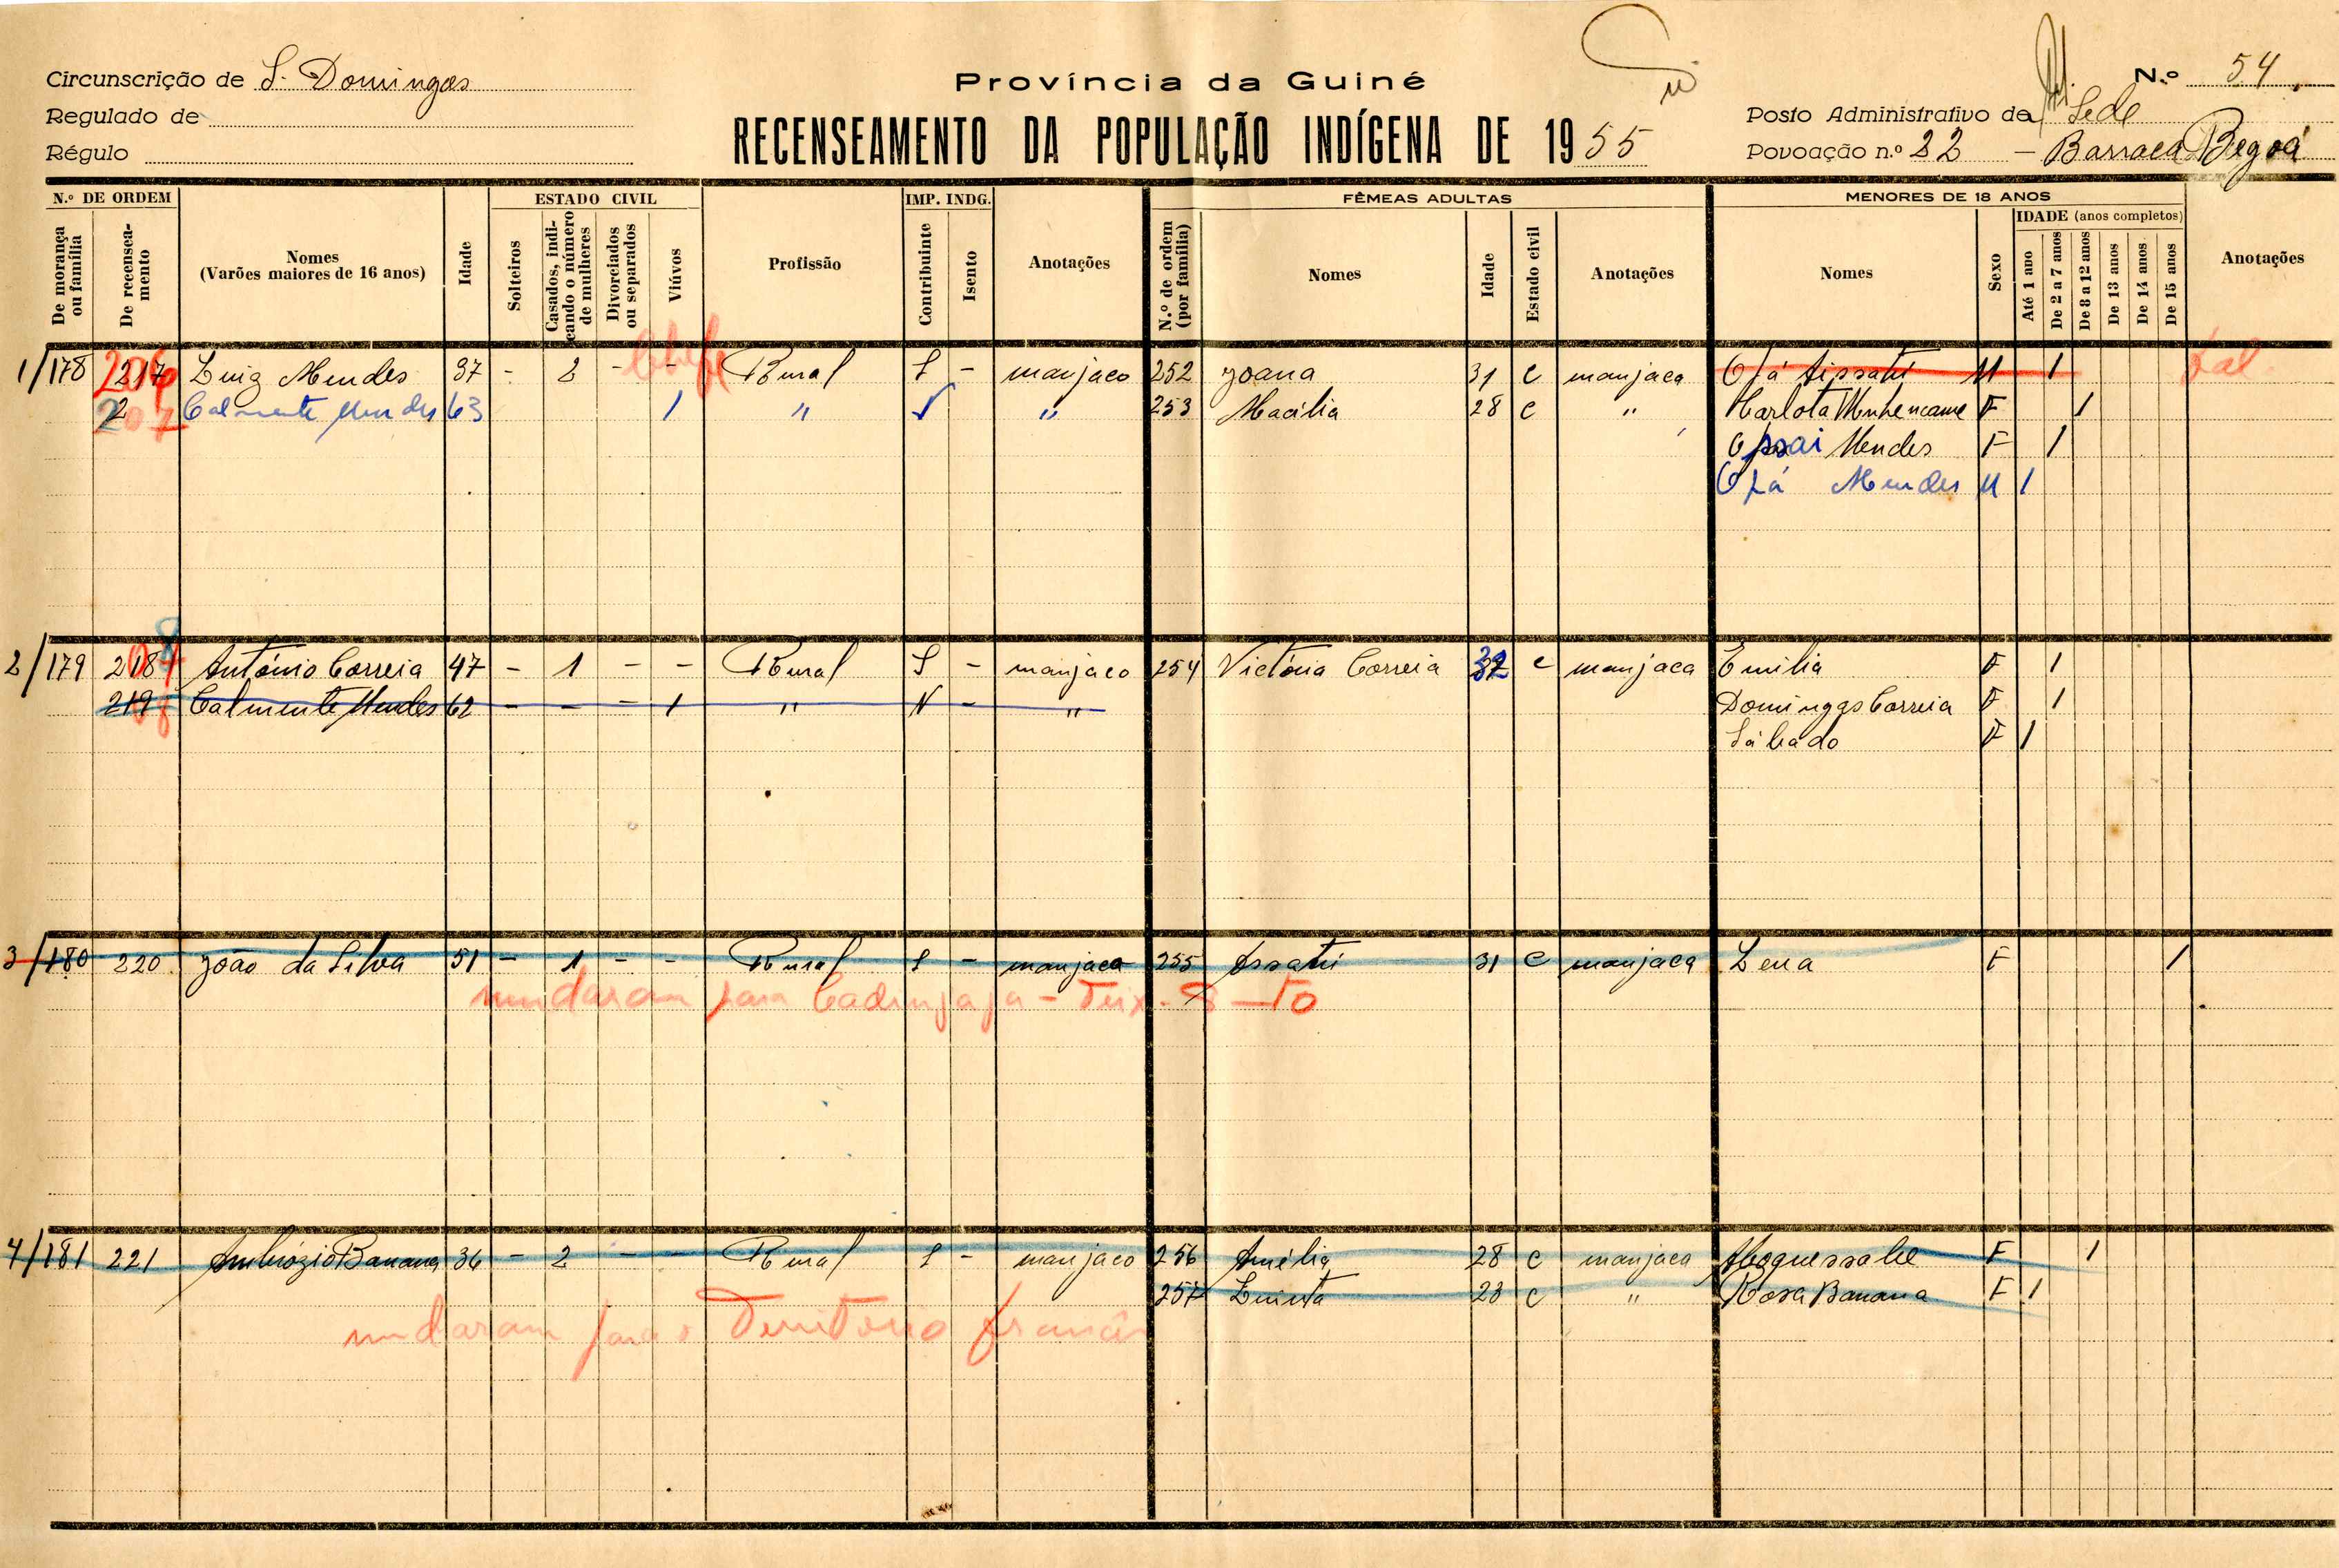 Circunscrição de S. Domingos
Regulado de
Régulo
Província da Guiné
RECENSEAMENTO DA POPULAÇÃO INDÍGENA DE 1955
N.º 54
Posto Administrativo de Sede
Povoação n.º 22 - Barraca Begoá
N.º DE ORDEM
De morança ou família
De recenseamento
Nomes (Varões maiores de 16 anos)
Idade
ESTADO CIVIL
Solteiros
Casados, indicando o número de mulheres
Divorciados ou separados
Viúvos
Profissão
IMP. INDG.
Contribuinte
Isento
Anotações
FÊMEAS ADULTAS
N.º de ordem (por família)
Nomes
Idade
Estado civil
Anotações
MENORES DE 18 ANOS
Nomes
Sexo
IDADE (anos completos)
Até 1 ano
De 2 a 7 anos
De 8 a 12 anos
De 13 anos
De 14 anos
De 15 anos
Anotações
1/178 217 Luiz Mendes 37 - 2 - - Chefe Rural S - manjaco 252 Joana 31 c manjaca Ofá M 1 Fal.
207 Calmente Mendes 63 1 " " 253 Macília 28 c " Carlota F 1
Mendes F 1
Mendes M 1
2/179 António Correia 47 - 1 - - Rural S - manjaco 254 Victória Correia 32 c manjaca Emilia F 1
219 Calmente Mendes 62 - - - 1 " N - " Domingas Correia F 1
Sábado F 1
3/180 220 João da Silva 51 - 1 - - Rural S - manjaco 255 Assatú 31 c manjaca Lena F 1
mudaram para
4/181 221 Ambrózio Banana 36 - 2 - - Rural S - manjaco 256 Amélia 28 c manjaca F 1
257 23 c " Rosa Banana F 1
mudaram para o Territorio francês